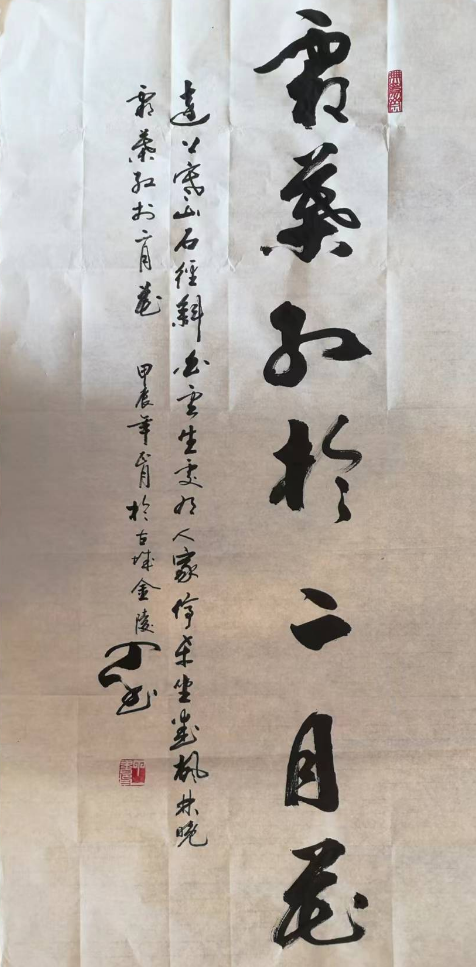 霜葉紅於二月花
遠上寒山石徑斜白雲生處有人家停車坐愛楓林晚
霜葉紅於二月花 甲辰年月於古城金陵